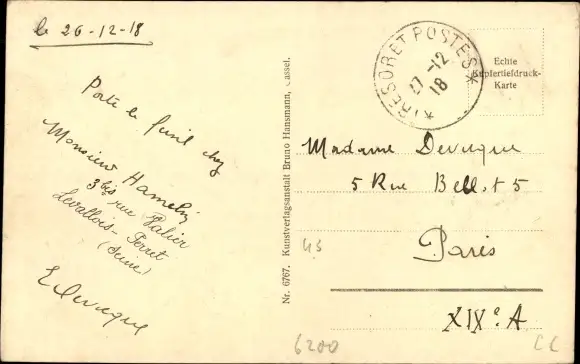 le 26-12-18
Porte le fusil chez
Monsieur Hamelin
3 bis rue Valier
Levallois-Perret
(Seine)
E Devuque
Nr. 6767. Kunstverlagsanstalt Bruno Hansmann, Cassel.
* TRESOR ET POSTES *
27-12
18
Echte
Kupfertiefdruck-
Karte
Madame Devuque
5 Rue Bellot 5
Paris
XIXe. A
45
6200
CC